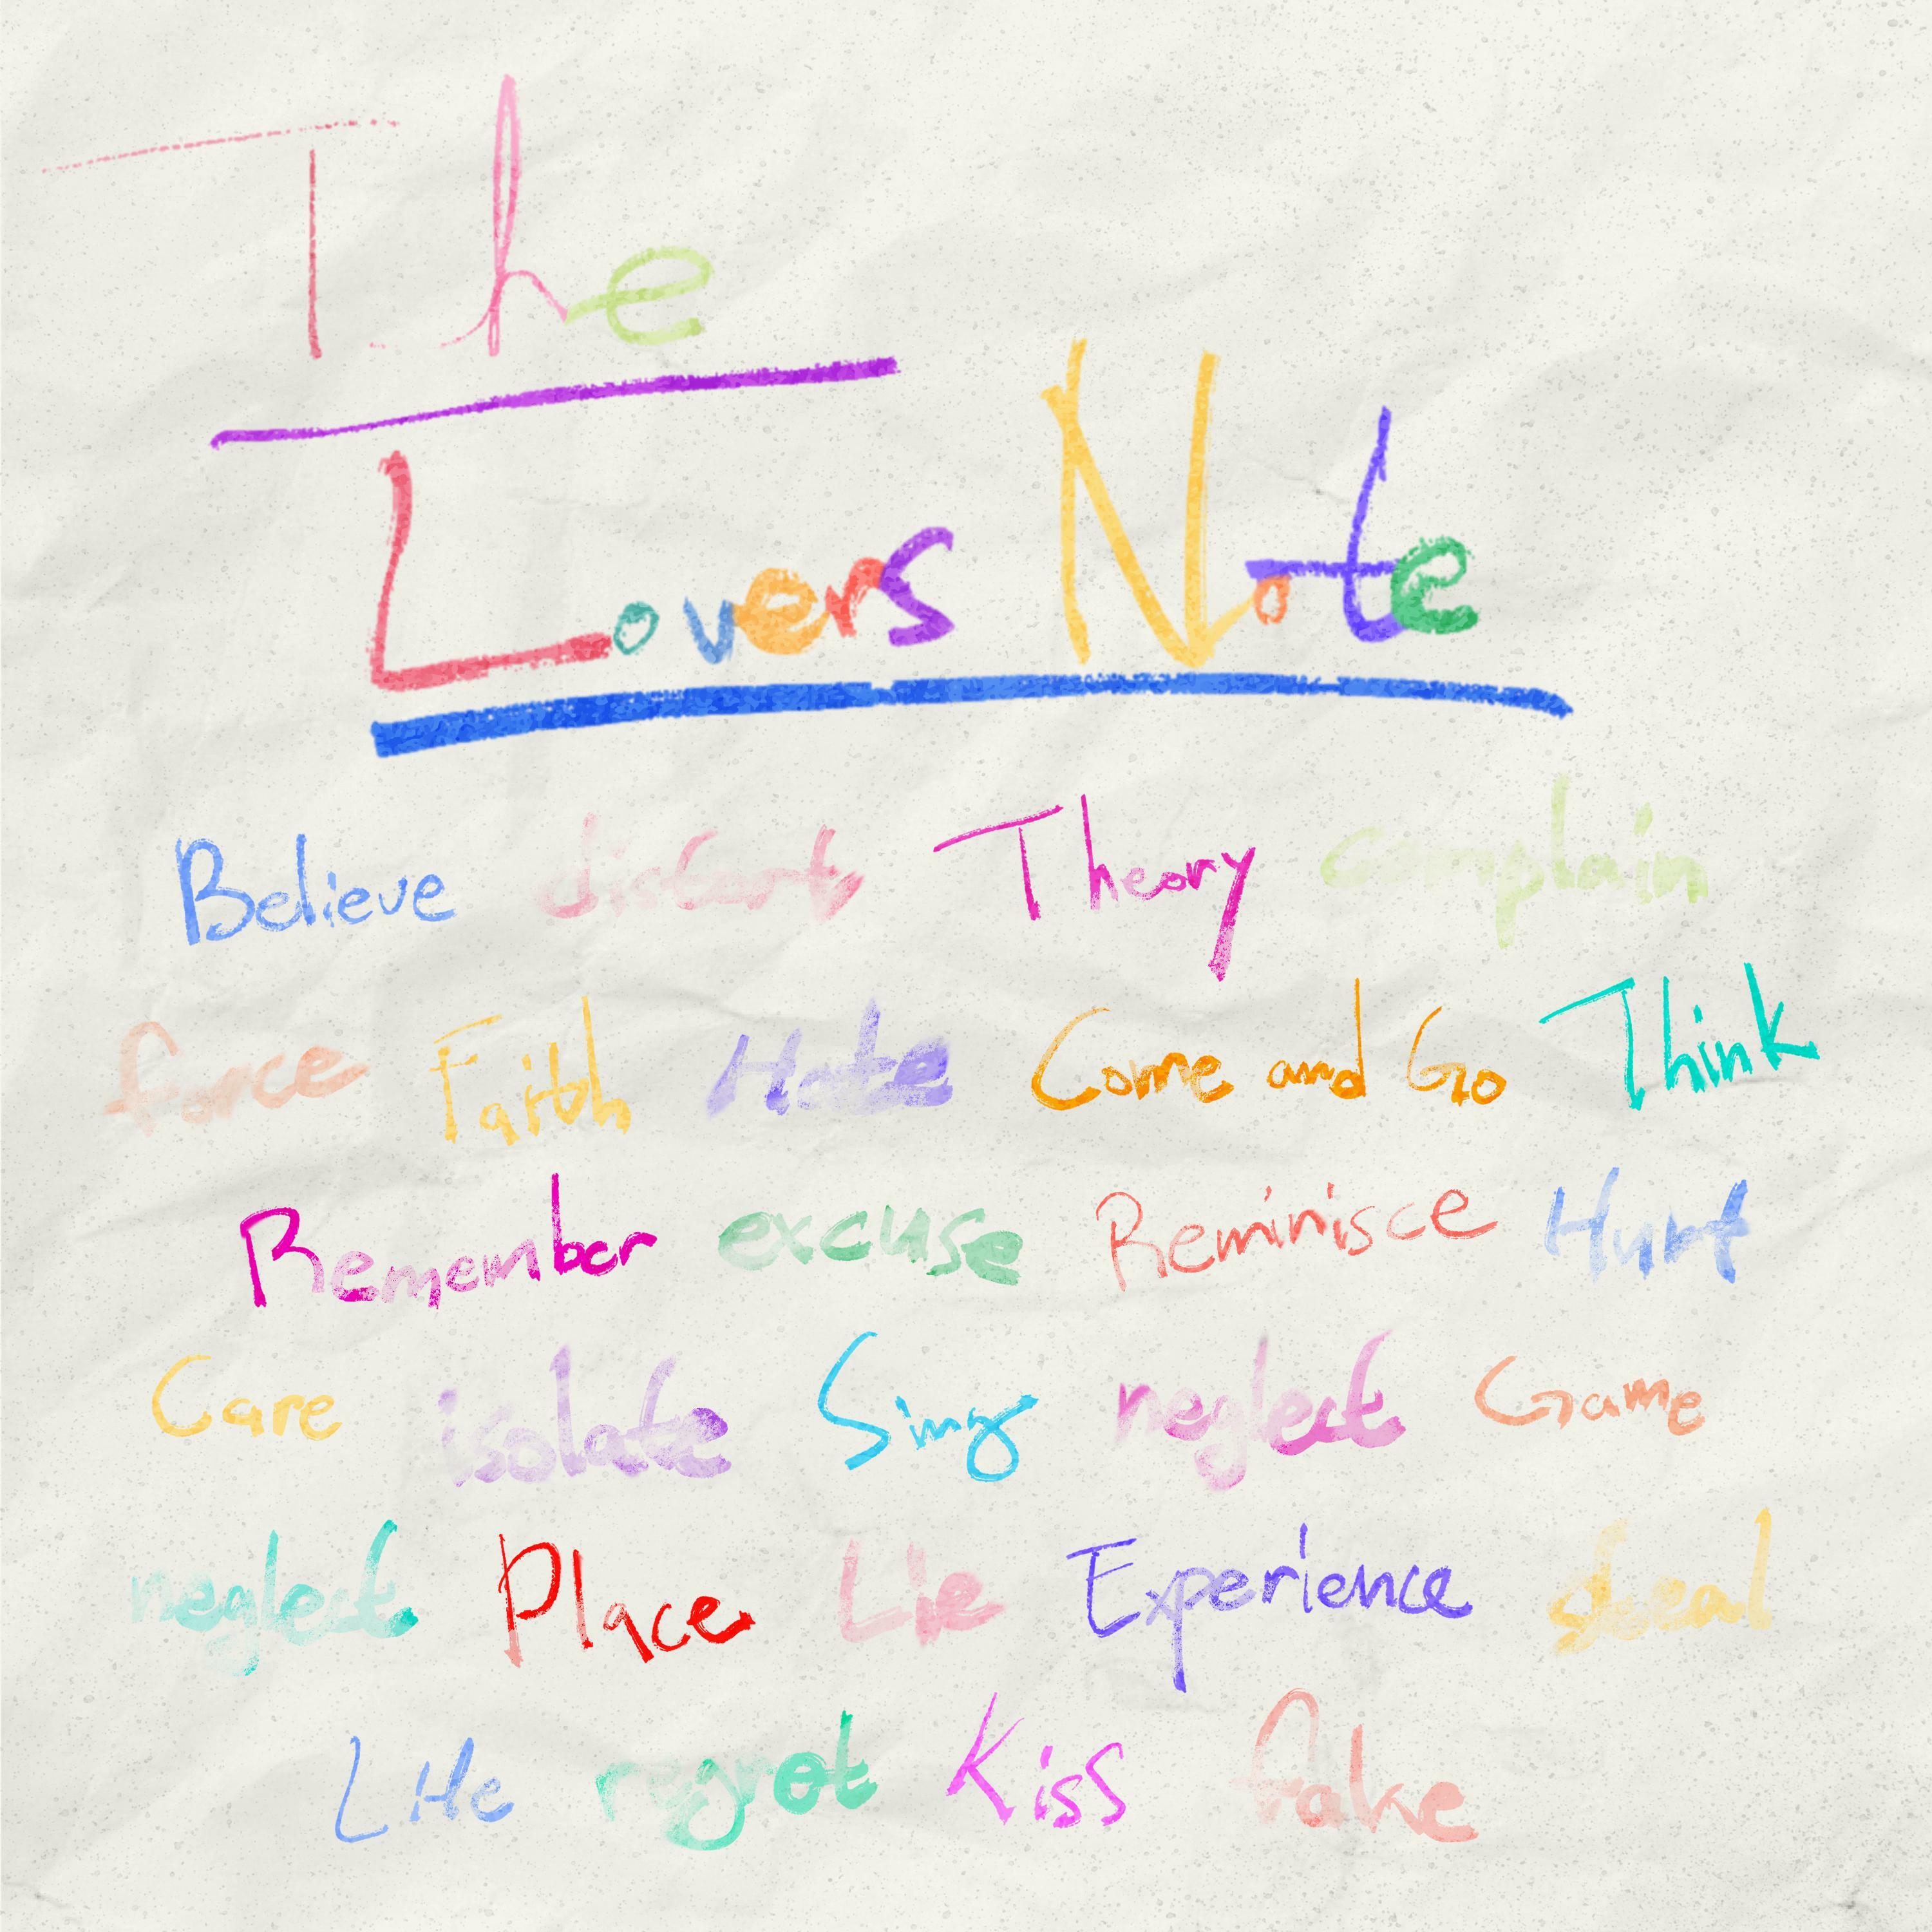 The
Lovers Note
Believe distort Theory complain
force Faith Hate Come and Go Think
Remember excuse Reminisce Hurt
Care isolate Sing neglect Game
neglect Place Lie Experience
Life regret Kiss fake